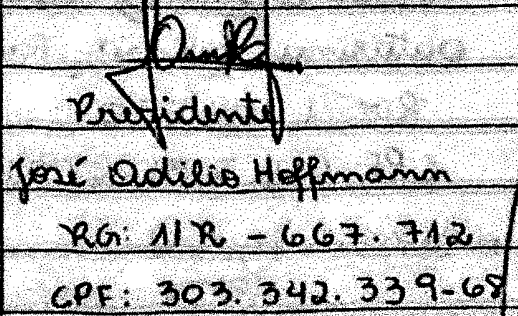 Presidente
José Adilio Hoffmann
RG: 11R - 667.712
CPF: 303.342.339-68